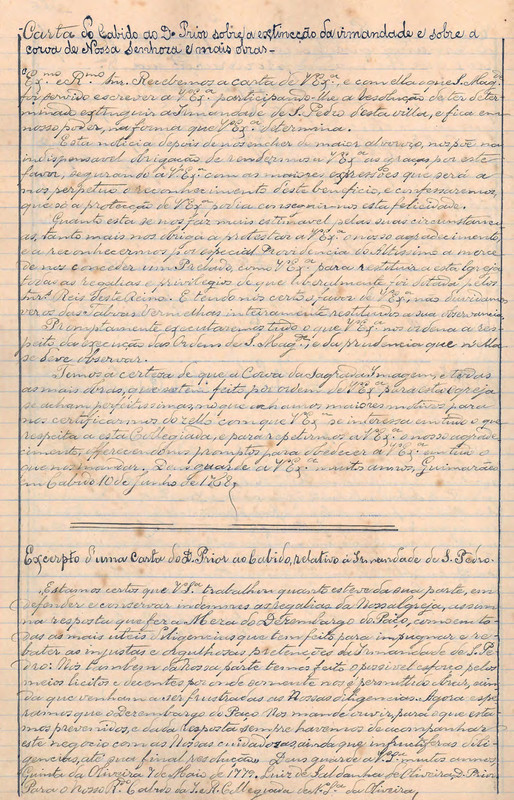 Carta do Cabido ao D. Prior sobre a extincção da irmandade e sobre a
corôa de Nossa Senhora e mais obras.
"Exmo e Rmo Snr. Recebemos a carta de V. Exa, e com ella a que S. Mage
foi servido escrever a V. Exa participando-lhe a resolução de ter deter-
minado extinguir a Irmandade de S. Pedro desta villa, e fica em
nosso poder, na forma que V. Exa determina.
Esta noticia depois de nos encher de maior alvoroço, nos põe na
indispensavel obrigação de rendermos a V. Exa as graças por este
favor, segurando a V. Exa com as maiores expressões que será a
nós perpetuo o reconhecimento deste beneficio, e confessaremos,
que só a protecção de V. Exa podia conseguir-nos esta felicidade.
Quanto esta se nos faz mais estimavel pelas suas circunstanci-
as, tanto mais nos obriga a protestar a V. Exa o nosso agradecimento,
e a reconhecermos por especial Providencia do Altissimo a mercê
de nos conceder um Prelado, como V. Exa para restituir a esta Igreja
todas as regalias, e privilegios de que liberalmente foi dotada pelos
Snrs Reis deste Reino. E tendo nós certo o favor de V. Exa, não duvidamos
ver os desvelos inteiramente restituidos a sua observancia.
Promptamente executaremos tudo o que V. Exa nos ordena a res-
peito da execução das Ordens de S. Mage, e da prudencia que n'ella
se deve observar.
Temos a certeza de que a Corôa da Sagrada Imagem, e todas
as mais obras, que se tem feito por ordem de V. Exa para esta Igreja
se acham perfeitissimas, no que achamos maiores motivos para
nos certificarmos do zello com que V. Exa se interessa em tudo o que
respeita a esta Collegiada, e para repetirmos a V. Exa o nosso agrade-
cimento, offerecendo-nos promptos para obedecer a V. Exa em tudo o
que nos mandar. Deus guarde a V. Exa muitos annos. Guimarães
em Cabido 10 de Junho de 1768.
Excerpto d'uma carta do D. Prior ao Cabido, relativo á Irmandade de S. Pedro.
"Estamos certos que V. Sa trabalhou quanto esteve da sua parte, em
defender e conservar indemnes as regalias da Nossa Igreja, assim
na resposta que fez a Meza do Dezembargo do Paço, como em to-
das as mais uteis diligencias que tem feito para impugnar e re-
bater as injustas e orgulhosas pretenções da Irmandade de S. Pe-
dro: Nós tambem da Nossa parte temos feito o possivel esforço pelos
meios licitos e decentes por onde somente nos é permittido obrar, ain-
da que venham a ser frustradas as Nossas diligencias. Agora espe-
ramos que o Dezembargo do Paço Nos mande ouvir, para o que esta-
mos prevenidos, e dada a resposta sempre havemos de acompanhar
este negocio com as Nossas cuidadosas, ainda que infructiferas dili-
gencias, até sua final resolução. Deus guarde a V. Sa muitos annos,
Quinta da Oliveira 7 de Maio de 1779. Luiz de Saldanha de Oliveira, D. Prior.
Para o Nosso R. Cabido da I. e R. Collegiada de N. Sra da Oliveira,